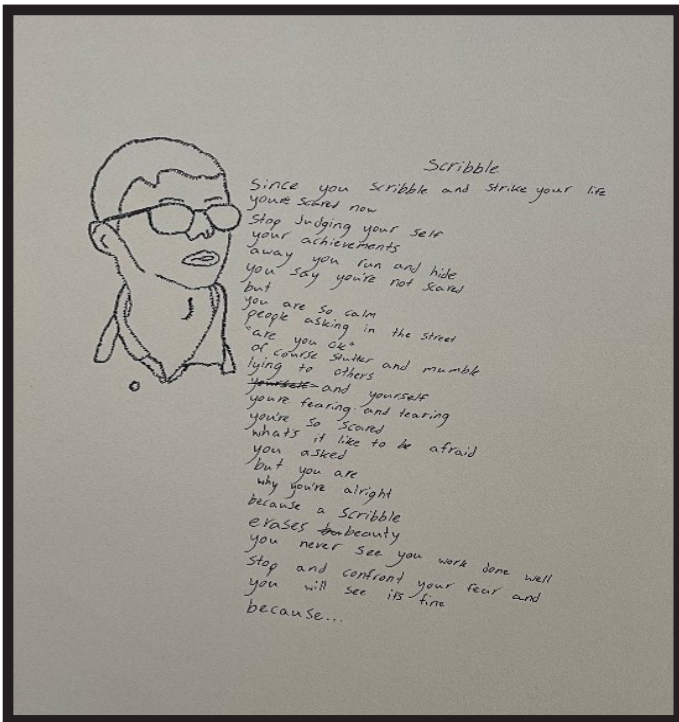 Scribble
Since you scribble and strike your life
you're scared now
Stop Judging your self
your achievements
away you run and hide
you say you're not scared
but
you are so calm
people asking in the street
"are you ok"
of course stutter and mumble
lying to others
yourself and yourself
you're fearing and tearing
you're so scared
what's it like to be afraid
you asked
but you are
why you're alright
because a scribble
erases bu beauty
you never see you work done well
Stop and confront your fear and
you will see its fine
because...